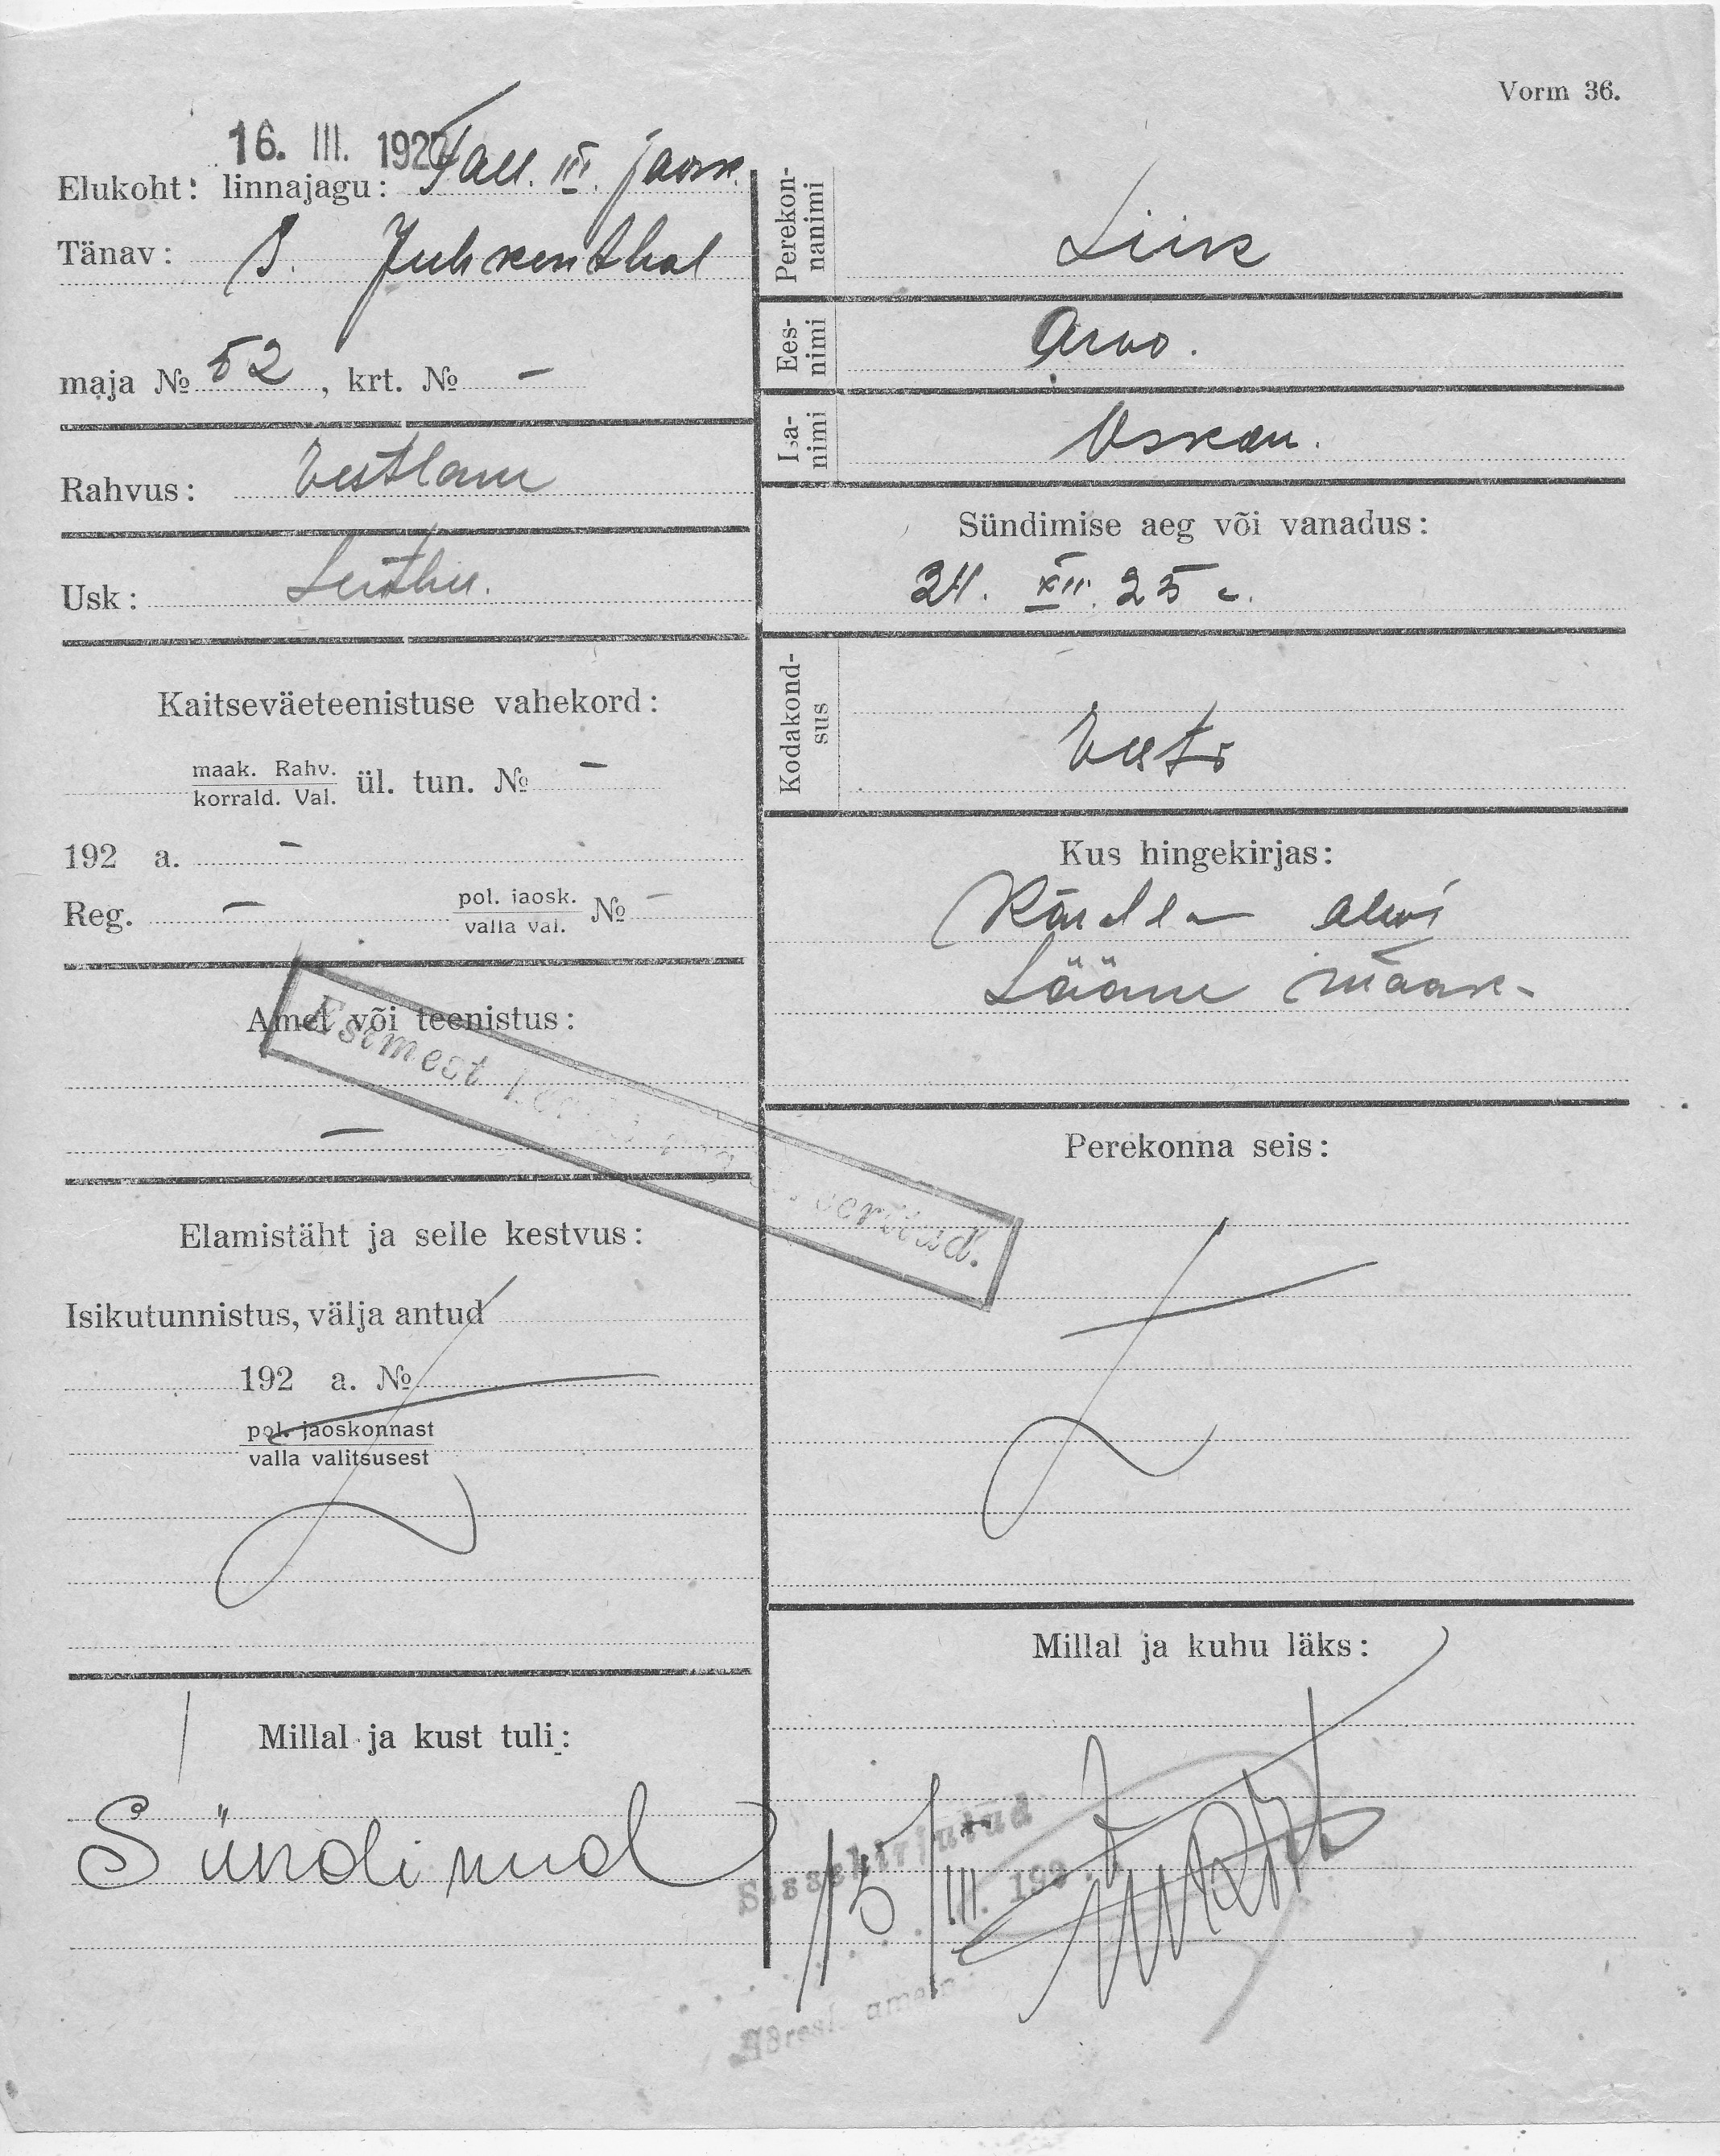 Vorm 36.
16. III. 192
Elukoht: linnajagu: Tall. III. jaosk.
Tänav: S. Juhkenthal
maja № 52, krt. № –
Rahvus: Eestlane
Usk: Luthu.
Kaitseväeteenistuse vahekord:
maak. Rahv.
korrald. Val. ül. tun. № –
192 a. –
Reg. – pol. jaosk.
valla val. № –
Amet või teenistus:
–
Esimest
Elamistäht ja selle kestvus:
Isikutunnistus, välja antud
192 a. №
pol. jaoskonnast
valla valitsusest
Millal ja kust tuli:
Sündinud
Perekon-
nanimi Liik
Ees-
nimi Arvo.
Isa-
nimi Oskar.
Sündimise aeg või vanadus:
XII. 25
Kodakond-
sus Eesti
Kus hingekirjas:
Kärdla alevi
Lääne maak-
Perekonna seis:
Millal ja kuhu läks:
Sissekirjutud
15/III. 192
Adresl. amet